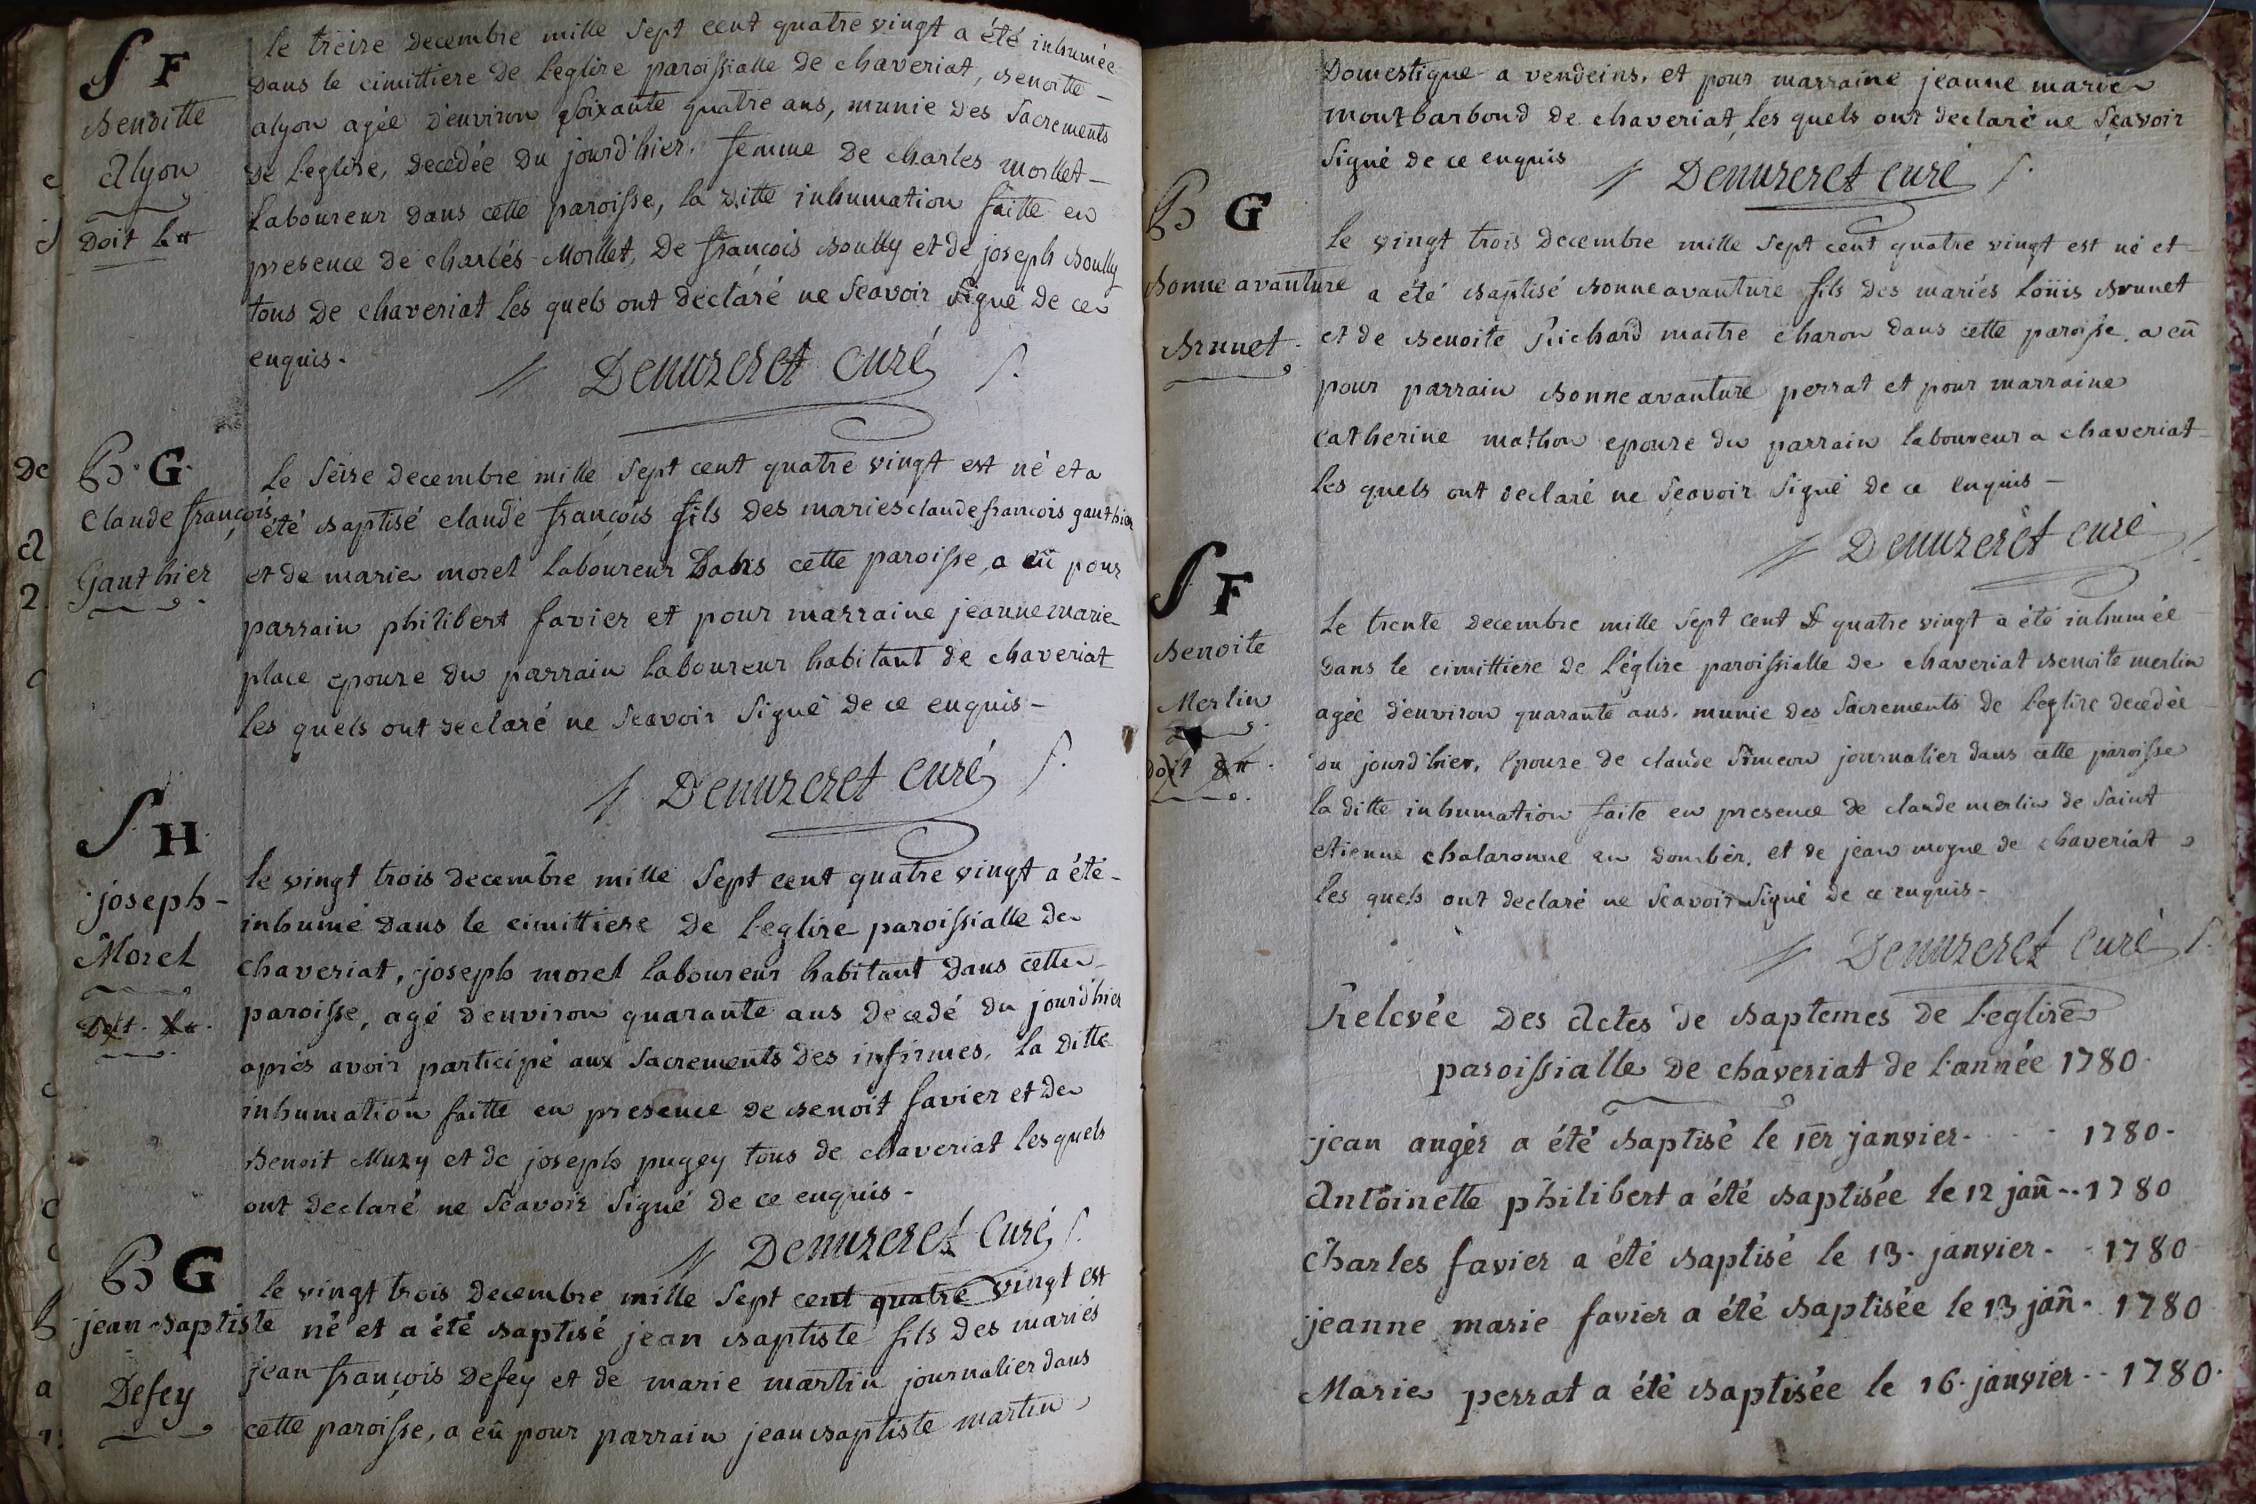 S F
Benoitte
Alyon
Doit
le treize decembre mille sept cent quatre vingt a été inhumée
dans le cimittiere de l'eglize paroissialle de chaveriat, benoitte
alyon agée d'environ soixante quatre ans, munie des sacrements
de l'eglize, decedée du jourd'hier. femme de charles morllet
laboureur dans cette paroisse, la ditte inhumation faitte en
presence de charles Morllet, de françois boully et de joseph boully
tous de chaveriat les quels ont déclaré ne scavoir signé de ce
enquis.
Demurzeret curé
B G
Claude françois
Gauthier
le seize decembre mille sept cent quatre vingt est né et a
été baptisé claude françois fils des maries claude francois gauthier
et de marie morel laboureur dans cette paroisse, a eû pour
parrain philibert favier et pour marraine jeanne marie
place epouze du parrain laboureur habitant de chaveriat
les quels ont declaré ne scavoir signé de ce enquis
Demurzeret curé
S H
joseph
Morel
Doit
le vingt trois decembre mille sept cent quatre vingt a été
inhumé dans le cimittiere de l'eglize paroissialle de
chaveriat, joseph morel laboureur habitant dans cette
paroisse, agé d'environ quarante ans decedé du jourd'hier
après avoir participé aux sacrements des infirmes, la ditte
inhumation faitte en presence de benoit favier et de
Benoit Muzy et de joseph pugey tous de chaveriat les quels
ont declaré ne scavoir signé de ce enquis
Demurzeret Curé
B G
jean baptiste
Defey
le vingt trois decembre mille sept cent quatre vingt est
né et a été baptisé jean baptiste fils des mariés
jean françois Defey et de marie martin journalier dans
cette paroisse, a eû pour parrain jean baptiste martin
Domestique a vendeins, et pour marraine jeanne marie
montbarbond de chaveriat, les quels ont declaré ne scavoir
signé de ce enquis
Demurzeret curé
B G
Bonne avanture
Brunet
le vingt trois decembre mille sept cent quatre vingt est né et
a été baptisé bonne avanture fils des mariés Loüis brunet
et de benoite Richard maitre charon dans cette paroisse, a eû
pour parrain bonne avanture perrat et pour marraine
catherine mathon epouze du parrain laboureur a chaveriat
les quels ont declaré ne scavoir signé de ce enquis
Demurzeret curé
S F
Benoite
Merlin
doit
le trente decembre mille sept cent quatre vingt a été inhumée
dans le cimittiere de l'églize paroissialle de chaveriat benoite merlin
agée d'environ quarante ans. munie des sacrements de l'eglize decedée
du jourd'hier, epouze de claude Simeon journalier dans cette paroisse
la ditte inhumation faite en presence de claude merlin de saint
etienne chalaronne en dombes, et de jean mogne de chaveriat
les quels ont declaré ne scavoir signé de ce enquis
Demurzeret curé
Relevée des Actes de baptemes de l'eglize
paroissialle de chaveriat de l'année 1780
jean anger a été baptisé le 1er janvier 1780
Antoinette philibert a été baptisée le 12 jañ 1780
Charles favier a été baptisé le 13 janvier 1780
jeanne marie favier a été baptisée le 13 jañ 1780
Marie perrat a été baptisée le 16 janvier 1780